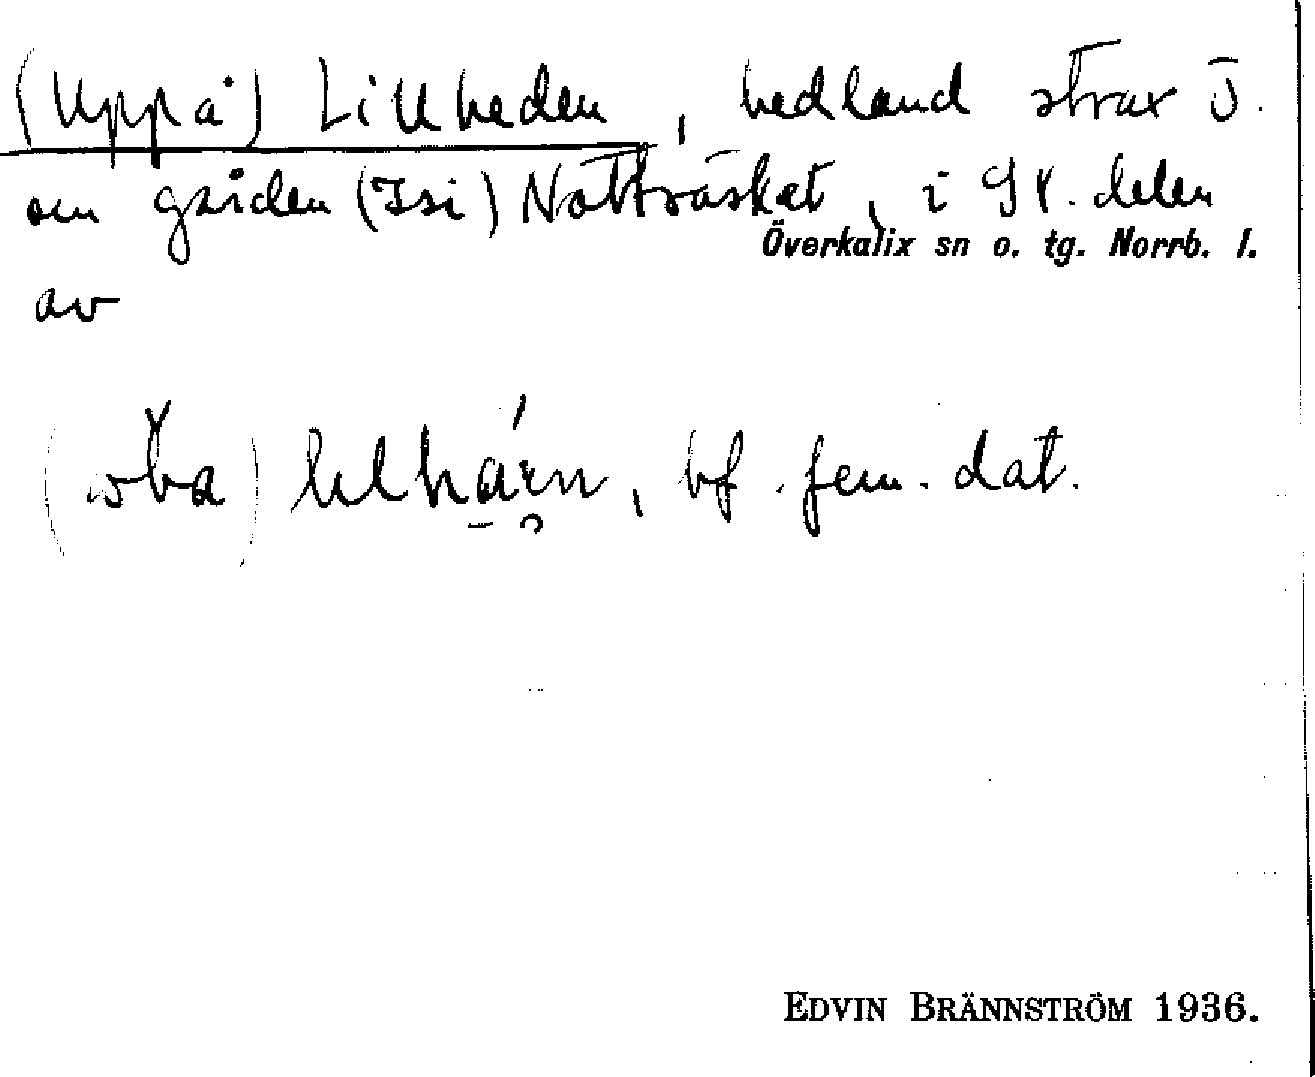 (Uppå) Lillheden, hedland strax ö.
om gården (Isi) Nattträsket, i SV. delen
Överkalix sn o. tg. Norrb. l.
av
bf. fem. dat.
EDVIN BRÄNNSTRÖM 1936.